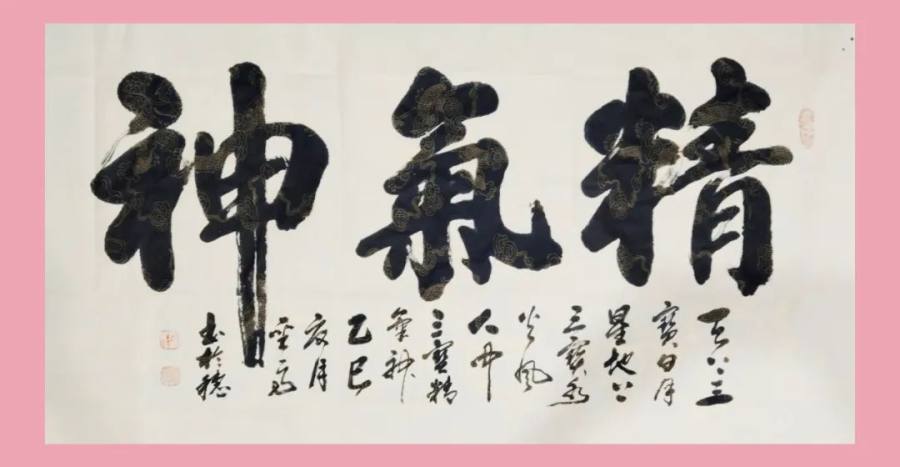 精氣神
天上三
寶日月
星地上
三寶水
火風
人中
三寶精
氣神
乙巳
夏月
聖
書於穗